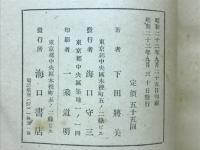 昭和二十二年九月二十五日印刷
昭和二十二年九月三十日発行
定價五十五円
著者 下田將美
東京都中央區木挽町五ノ二錦ビル
發行者 海口守三
東京都中央區築地一ノ一四
印刷者 一飛道明
東京都中央區木挽町五ノ二錦ビル
發行所 海口書店